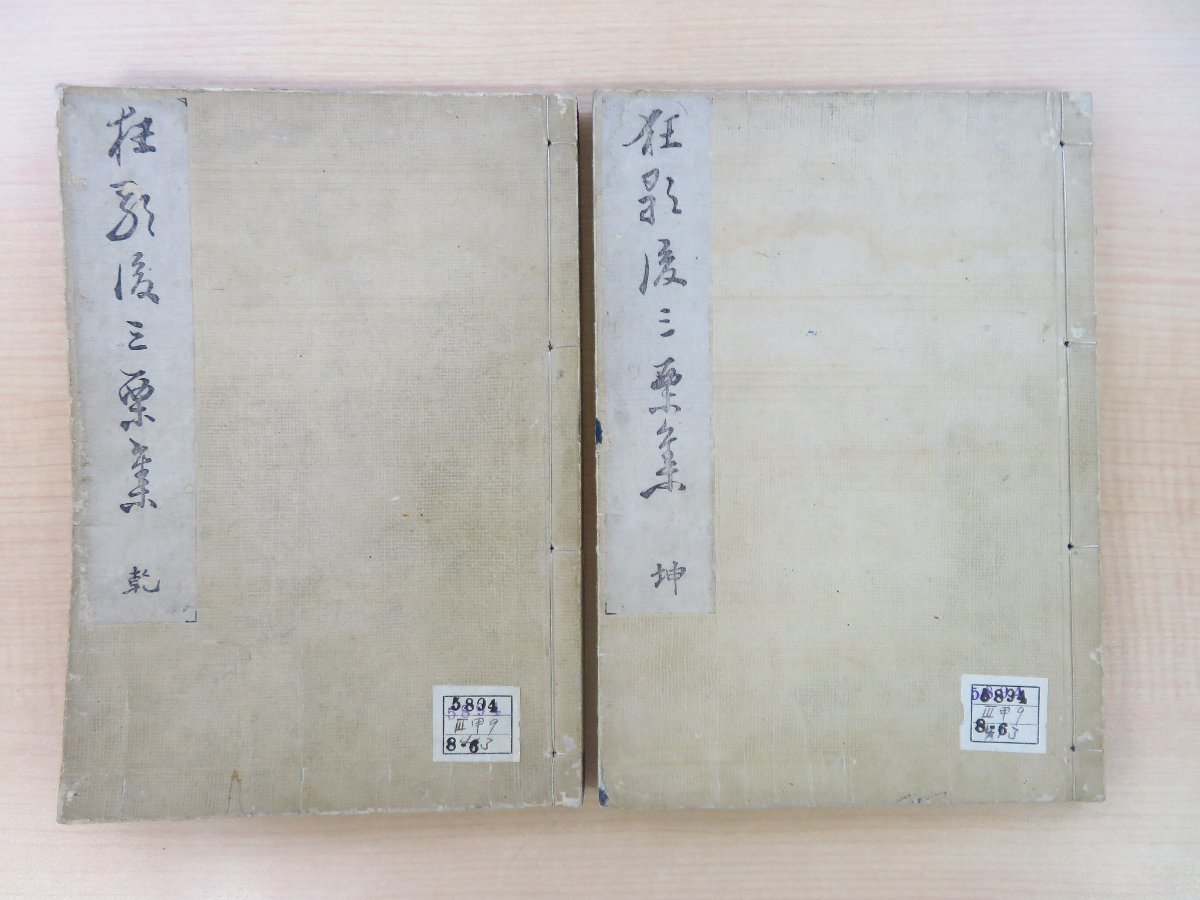 狂歌後三栗集
乾
狂歌後三栗集
坤
5894
III甲9
8-6
5894
III甲9
8-6